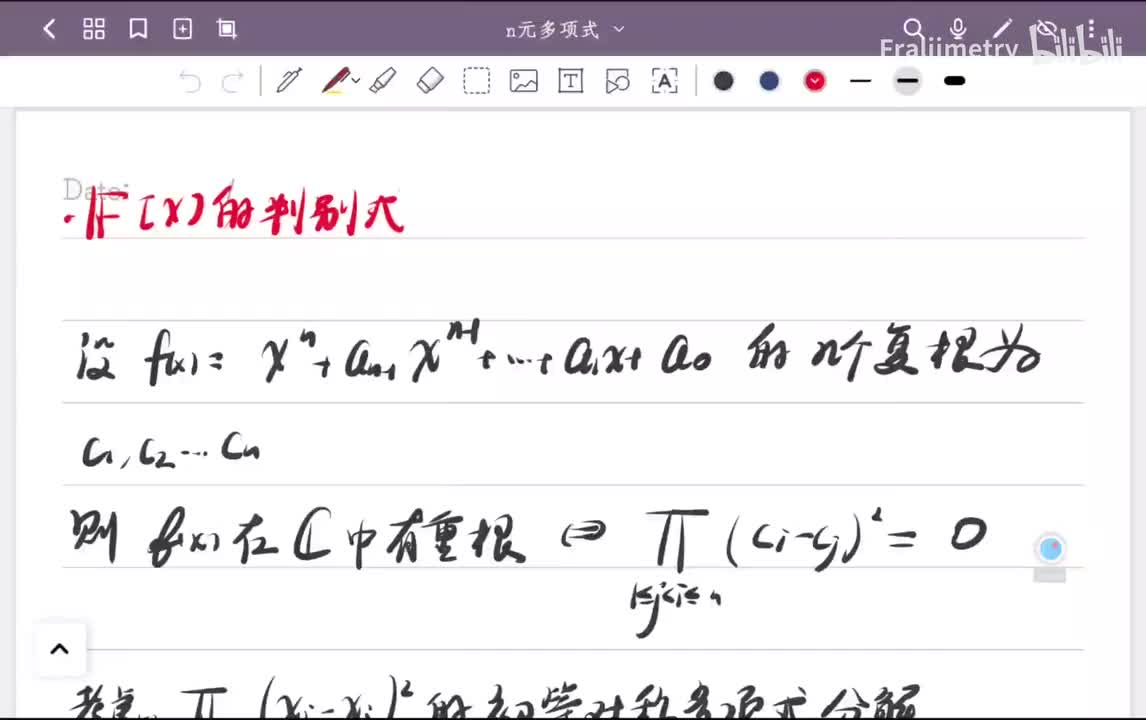 n元多项式
Fraliimetry bilibili
Date:
·𝔽[x]的判别式
设 f(x) = xⁿ + aₙ₋₁xⁿ⁻¹ + … + a₁x + a₀ 的n个复根为
c₁, c₂ … cₙ
则 f(x) 在 ℂ 中有重根 ⇔ ∏ (cᵢ-cⱼ)² = 0
1≤j<i≤n
考虑 ∏ (xᵢ-xⱼ)² 的初等对称多项式分解